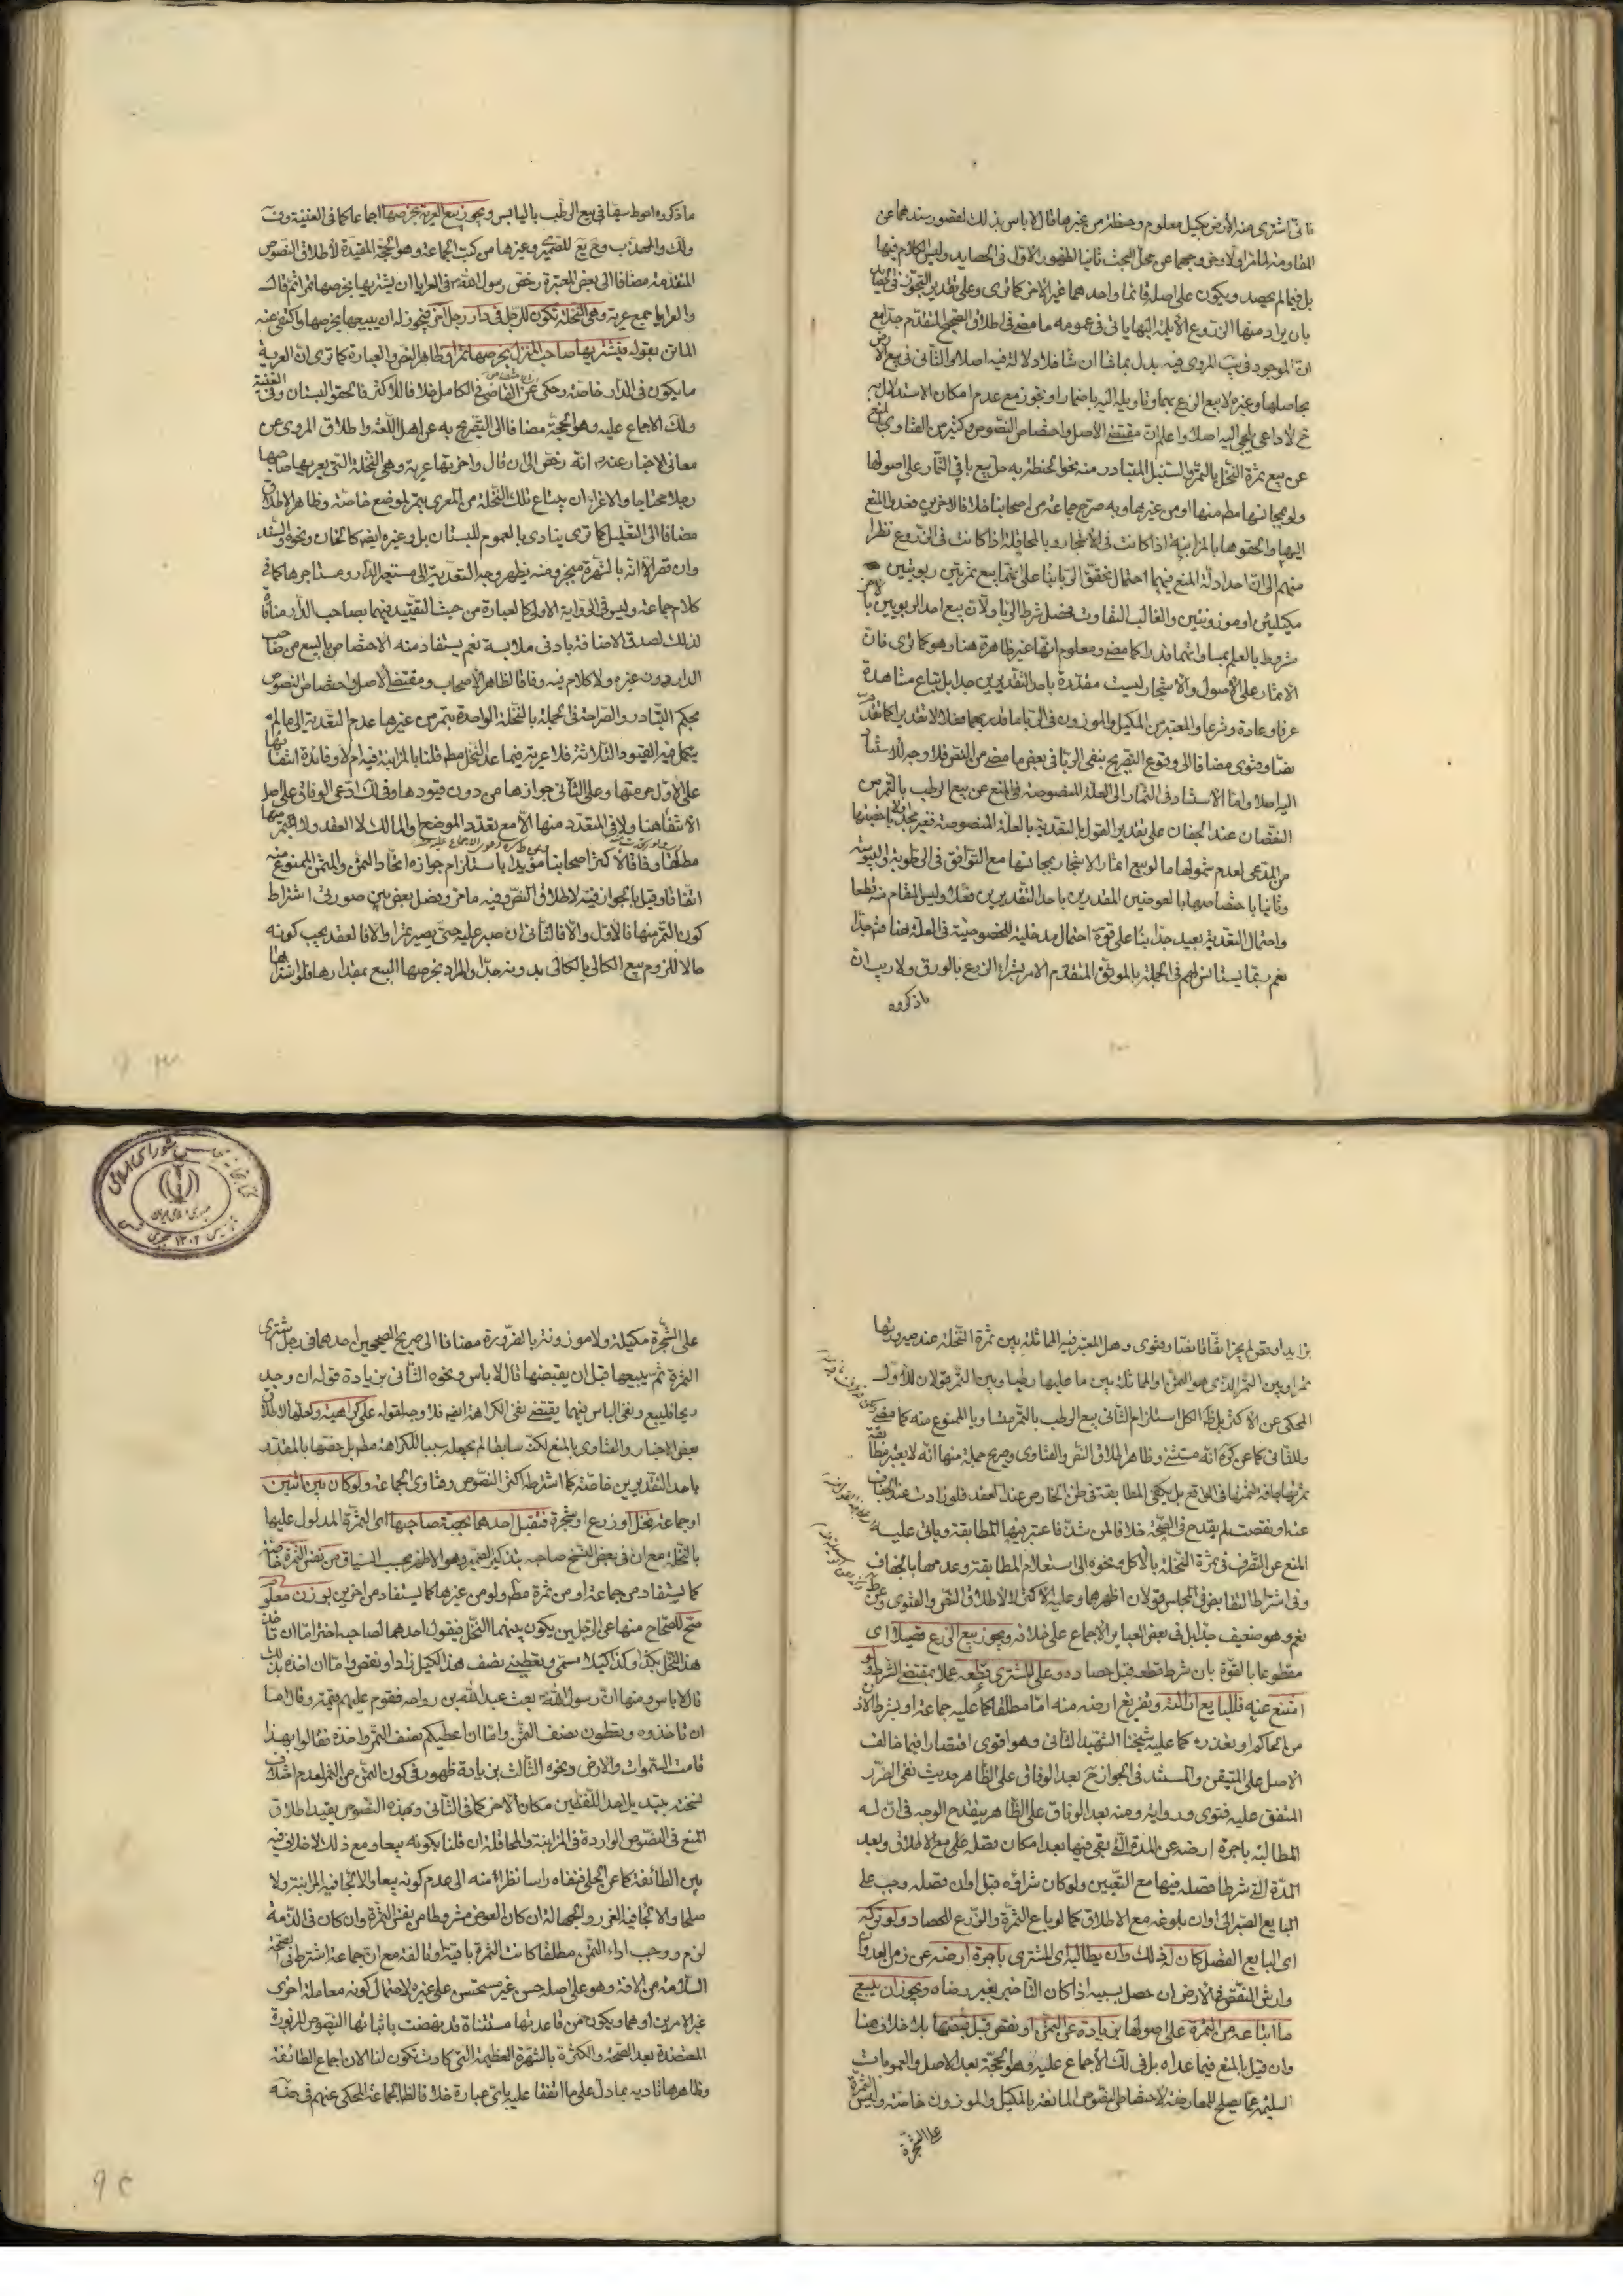 فانى اشترى منه الأرض بكيل معلوم وحنطة من غيرها قال لا باس بذلك لقصور سندهما عن
المقاومة لما مر اولا وخروجهما عن محل البحث ثانيا لظهور الاول فى الحصايد وليس الكلام فيها
بل فيما لم يحصد ويكون على اصله قائما واحدهما غير الاخر كما ترى وعلى تقدير التجوز فى الحصايد
بان يراد منها الزروع الآيلة اليها ياتى فى عمومه ما مضى فى اطلاق الصحيح المتقدم جدا مع
انّ الموجود فى يب المروى فيه بدل بماشا ان شا فلا دلالة فيه اصلا والثانى فى بيع الارض
بحاصلها وغيره لا بيع الزرع بهما وتاويله اليه باضمار او تجوز مع عدم امكان الاستدلال به
ح لا داعى يلجى اليه اصلا واعلم انّ مقتضى الأصل واختصاص النصوص وكثير من الفتاوى بالمنع
عن بيع ثمرة النخل بالتمر والسنبل المتبادر منه نحو الحنطة به حل بيع باقى الثمار على اصولها
ولو بمجانسها مطم منها او من غيرها وبه صرح جماعة من اصحابنا خلافا لاخرين فعدوا المنع
اليها والحقوها بالمزابنة اذا كانت فى الأشجار وبالمحاقلة اذا كانت فى الزروع نظرا
منهم الى انّ احد ادلة المنع فيهما احتمال تحقق الربا بناء على انهما بيع ثمرتين ربويتين
مكيلتين او موزونتين والغالب التفاوت فحصل شرط الربا ولأن بيع احد الربويين بالاخر
مشروط بالعلم بمساواتهما قدرا كما مضى ومعلوم انها غير ظاهرة هنا وهو كما ترى فان
الاثمار على الأصول والأشجار ليست مقدّرة باحد التقديرين جدا بل تباع مشاهدة
عرفا وعادة وشرعا والمعتبر من المكيل والموزون فى الربا ما قدر بهما فعلا لا تقديرا كما تقدم
نصّا وفتوى مضافا الى وقوع التصريح بنفى الربا فى بعض ما مضى من النص فلا وجه للاستناد
اليه اصلا واما الاستناد فى الثمار الى العلة المنصوصة فى المنع عن بيع الرطب بالتمر من
النقصان عند الجفاف على تقدير القول بالتعدية بالعلة المنصوصة فغير مجد اولا باخصيتها
من المدعى لعدم شمولها ما لو بيع اثمار الاشجار بمجانسها مع التوافق فى الرطوبة واليبوسة
وثانيا باختصاصها بالعوضين المقدرين باحد التقديرين فعلا وليس المقام منه قطعا
واحتمال التعدية بعيد جدا بناء على قوة احتمال مدخلية الخصوصية فى العلة هنا فتم جدّا
نعم ربما يستانس لهم فى الجملة بالموثق المتقدم الامر بشراء الزرع بالورق ولا ريب ان
ماذكروه
ماذكروه احوط سيما فى بيع الرطب باليابس ويجوز بيع العرية بخرصها اجماعا كما فى الغنية وف
ولك والمهذب للصيمرى وغيرها من كتب الجماعة وهو الحجة المقيدة لأطلاق النصوص
المتقدمة مضافا الى بعض المعتبرة رخص رسول الله فى العرايا ان يشتريها بخرصها تمرا ثم قال
والعرايا جمع عرية وهى النخلة تكون للرجل فى دار رجل آخر فيجوز له ان يبيعها بخرصها واكتفى عنه
الماتن بقوله فيشتريها صاحب المنزل بخرصها تمرا وظاهر النص والعبارة كما ترى انّ العرية
ما يكون فى الدار خاصة وحكى عن القاضى فى الكامل خلافا للاكثر فالحقوا البستان وفى الغنية
ولك الاجماع عليه وهو الحجة مضافا الى التصريح به عن اهل اللغة واطلاق المروى عن
معانى الاخبار عنه انه رخص الى ان قال واحدتها عرية وهى النخلة التى يعريها صاحبها
رجلا محتاجا والاعراء ان يبتاع تلك النخلة من المعرى بتمر لموضع خاصته وظاهر الاطلاق
مضافا الى التعليل كما ترى ينادى بالعموم للبستان بل وغيره ايضا كالخان ونحوه والسند
وان قصر الا انه بالشهرة منجبر ومنه يظهر وجه التعدية الى مستعير الدار ومستاجرها كما فى
كلام جماعة وليس فى الرواية الاولى كالعبارة من حيث التقييد فيهما بصاحب الدار منافاة
لذلك لصدق الاضافة بادنى ملابسة نعم يستفاد منه الاختصاص بالبيع من صاحب
الدار دون غيره ولا كلام فيه وفاقا لظاهر الأصحاب ومقتضى الأصل واختصاص النصوص
بحكم التبادر والصراحة فى الجملة بالنخلة الواحدة بتمر من غيرها عدم التعدية الى ما لم
يكمل فيه القيود الثلاثة فلا عرية فيما عدا النخل مطم قلنا بالمزابنة فيه ام لا وفائدة انتفائها
على الاول حرمتها وعلى الثانى جوازها من دون قيودها وفى لك ادعى الوفاق على اصل
الانتفاء هنا ولا فى المتعدد منها الا مع تعدد الموضع او المالك لا العقد ولا بتمر منها
مطلقا وفاقا لاكثر اصحابنا مؤيدا باستلزام جوازه اتحاد الثمن والمثمن الممنوع منه
اتفاقا وقيل بالجواز فيه لاطلاق النص وفيه ما مر وفصل بعض بين صورتى اشتراط
كون التمر منها فالأول والا فالثانى ان صبر عليه حتى يصير تمرا والا فالعقد يجب كونه
حالا للزوم بيع الكالى بالكالى بدونه جدا والمراد بخرصها البيع بمقدارها فلو اشتراها
بزايد او نقص لم يجز اتفاقا نصّا وفتوى وهل المعتبر فيه المماثلة بين ثمرة النخلة عند صيرورتها
تمرا وبين التمر الذى هو الثمن او المماثلة بين ما عليها رطبا وبين التمر قولان للأول
المحكى عن الاكثر بل الكل استلزام الثانى بيع الرطب بالتمر متساويا الممنوع منه كما مضى
وللثانى كما عن كره انه مستثنى وظاهر اطلاق النص والفتاوى وصريح جملة منها انه لا يعتبر مطابقة
ثمرتها جافة لثمنها فى الواقع بل يكفى المطابقة فى ظن الخارص عند العقد فلو زادت عند الجفاف
عنه او نقصت لم يقدح فى الصحة خلافا لمن شذّ فاعتبر فيها المطابقة وياتى عليه
المنع عن التصرف فى ثمرة النخلة بالأكل ونحوه الى استعلام المطابقة وعدمها بالجفاف
وفى اشتراط التقابض فى المجلس قولان اظهرهما وعليه الأكثر لا لاطلاق النص والفتوى وعن ط
نعم وهو ضعيف جدا بل فى بعض العباير الاجماع على خلافه ويجوز بيع الزرع قصيلا اى
مقطوعا بالقوة بان شرط قطعه قبل حصاده وعلى المشترى قطعه عملا بمقتضى الشرط ولو
امتنع عنه فللبايع ازالته وتفريغ ارضه منه امّا مطلقا كما عليه جماعة او بشرط الاذن
من الحاكم او تعذره كما عليه شيخنا الشهيد الثانى وهو اقوى اقتصارا فيما خالف
الاصل على المتيقن والمستند فى الجواز ح بعد الوفاق على الظاهر حديث نفى الضرر
المتفق عليه فتوى ورواية ومنه بعد الوفاق على الظاهر ينقدح الوجه فى انّ له
المطالبة باجرة ارضه عن المدة التى بقى فيها بعد امكان فصله على مع الاطلاق وبعد
المدّة التى شرطا فصله فيها مع التعيين ولو كان شراؤه قبل اوان فصله وجب على
البايع الصبر الى اوان بلوغه مع الاطلاق كما لو باع الثمرة والزرع للحصاد ولو تركه
اى البايع الفصل كان له ذلك وان يطالبه اى المشترى باجرة ارضه عن زمن العدوان
وارش النقص فى الارض ان حصل بسببه اذا كان التاخير بغير رضاه ويجوز ان يبيع
ما ابتاعه من الثمرة على اصولها بزيادة عن الثمن او نقص قبل قبضها بلا خلاف هنا
وان قيل بالمنع فيما عداه بل فى لك الأجماع عليه وهو الحجة بعد الاصل والعمومات
السليمة عما يصلح للمعارضة لاختصاص النصوص المانعة بالمكيل والموزون خاصة وليس الثمرة
على الشجرة
على الشجرة مكيلة ولا موزونة بالضرورة مضافا الى صريح الصحيحين احدهما فى رجل اشترى
الثمرة ثم يبيعها قبل ان يقبضها قال لا باس ونحوه الثانى بزيادة قوله ان وجد
ربحا فليبع ونفى الباس فيهما يقتضى نفى الكراهة ايضا فلا وجه لقوله على كراهية ولعلها لاطلاق
بعض الاخبار والفتاوى بالمنع لكنه سابقا لم يجعله سببا للكراهة مطم بل خصها بالمقدّر
باحد التقديرين خاصة كما اشترطه اكثر النصوص وفتاوى الجماعة ولو كان بين اثنين
او جماعة نخل او زرع او شجرة فتقبل احدهما بحصة صاحبها اى الثمرة المدلول عليها
بالنخلة مع ان فى بعض النسخ صاحبه بتذكير الضمير وهو الاظهر بحسب السياق من نفس الثمرة خاصة
كما يستفاد من جماعة او من ثمرة مطم ولو من غيرها كما يستفاد من اخرين بوزن معلوم
صح للصحاح منها عن الرجلين يكون بينهما النخل فيقول احدهما لصاحبه اختر امّا ان تاخذ
هذا النخل بكذا وكذا كيلا مسمى وتعطينى نصف هذا الكيل زاد او نقص واما ان اخذه بذلك
قال لا باس ومنها انّ رسول الله بعث عبد الله بن رواحة فقوم عليهم قيمة وقال اما
ان تاخذوه وتعطون نصف الثمن واما ان اعطيكم نصف الثمن واخذه فقالوا بهذا
قامت السموات والارض ونحوه الثالث بزيادة ظهور فى كون الثمن من الثمر لعدم اختلاف
نسخته بتبديل احد اللفظين مكان الاخر كما فى الثانى وبهذه النصوص يقيد اطلاق
المنع فى النصوص الواردة فى المزابنة والمحاقلة ان قلنا بكونه بيعا ومع ذلك لا خلاف فيه
بين الطائفة كما عن الحلى فنفاه راسا نظرا منه الى عدم كونه بيعا والا لجا فيه المزابنة ولا
صلحا والا لجا فيه الغرر والجهالة ان كان العوض مشروطا من نفس الثمرة وان كان فى الذمة
لزم ووجب اداء الثمن مطلقا كانت الثمرة باقية او تالفة مع انّ جماعة اشترط فى صحته
السلامة من الافة وهو على اصله حسن غير مستحسن على غيره لاحتمال كونه معاملة اخرى
غير الامرين او هما ويكون من قاعدتها مستثناة قد نهضت باثباتها النصوص المزبورة
المعتضدة بعد الصحة والكثرة بالشهرة العظيمة التى كادت تكون لنا الان اجماع الطائفة
وظاهرها تاديه بما دل على ما اتفقا عليه باىّ عبارة خلافا لظ الجماعة المحكى عنهم فى ضه